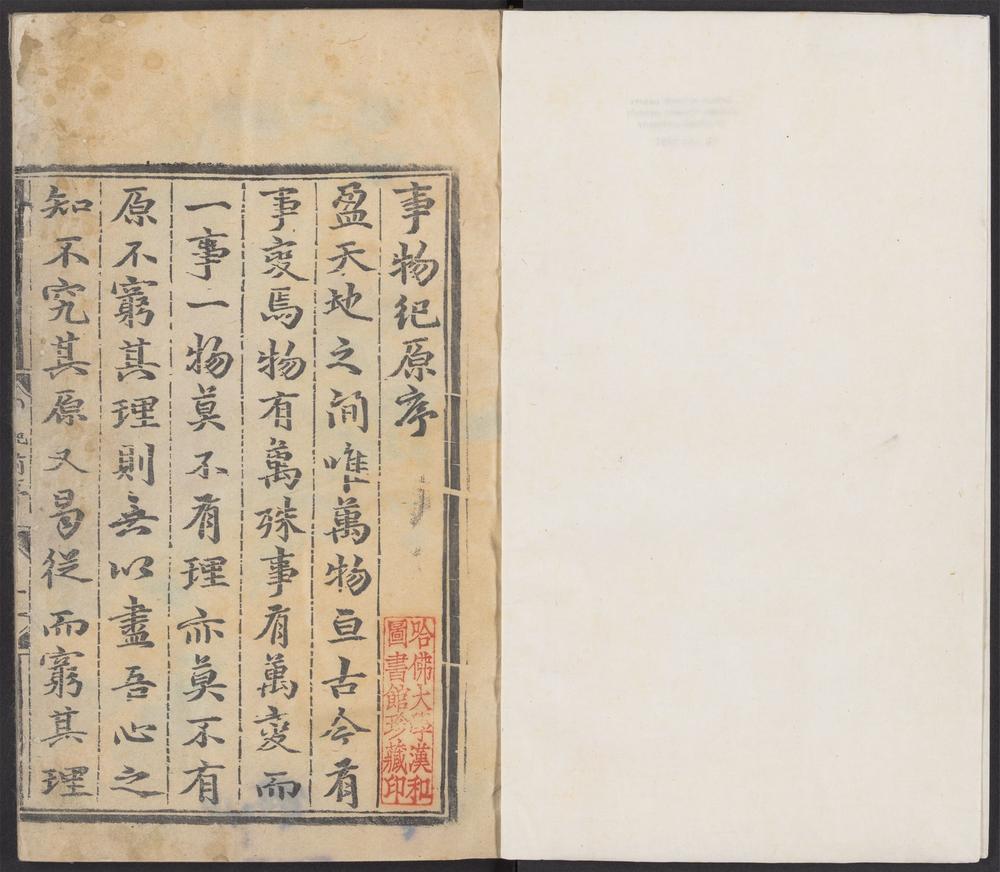 事物紀原序
盈天地之间唯萬物亘古今有
事變焉物有萬殊事有萬變而
一事一物莫不有理亦莫不有
原不窮其理則無以盡吾心之
知不究其原又曷從而窮其理
哈佛大學漢和
圖書館珍藏印